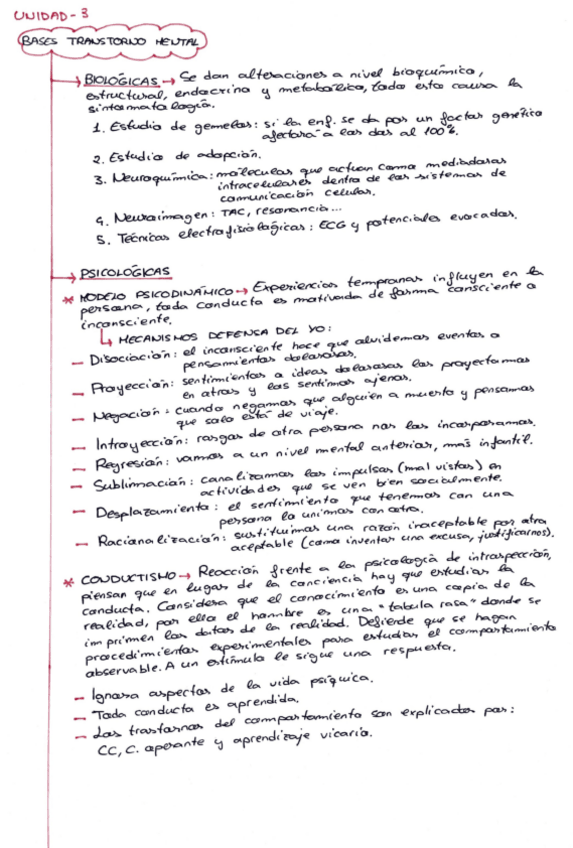 UNIDAD-3
BASES TRANSTORNO MENTAL
BIOLÓGICAS → Se dan alteraciones a nivel bioquímico,
estructural, endocrino y metabólico, todo esto causa la
sintomatología.
1. Estudio de gemelos: si la enf. se da por un factor genético
afectará a los dos al 100%.
2. Estudio de adopción.
3. Neuroquímica: moléculas que actúan como mediadoras
intracelulares dentro de los sistemas de
comunicación celular.
4. Neuroimagen: TAC, resonancia...
5. Técnicas electrofisiológicas: ECG y potenciales evocados.
PSICOLÓGICAS
* MODELO PSICODINÁMICO → Experiencias tempranas influyen en la
persona, toda conducta es motivada de forma consciente o
inconsciente.
MECANISMOS DEFENSA DEL YO:
- Disociación: el inconsciente hace que olvidemos eventos o
pensamientos dolorosos.
- Proyección: sentimientos o ideas dolorosas las proyectamos
en otros y las sentimos ajenas.
- Negación: cuando negamos que alguien a muerto y pensamos
que solo está de viaje.
- Introyección: rasgos de otra persona nos los incorporamos.
- Regresión: vamos a un nivel mental anterior, más infantil.
- Sublimación: canalizamos los impulsos (mal vistos) en
actividades que se ven bien socialmente.
- Desplazamiento: el sentimiento que tenemos con una
persona la unimos con otra.
- Racionalización: sustituimos una razón inaceptable por otra
aceptable (como inventar una excusa, justificarnos).
* CONDUCTISMO → Reacción frente a la psicología de introspección,
piensan que en lugar de la conciencia hay que estudiar la
conducta. Considera que el conocimiento es una copia de la
realidad, por ello el hombre es una "tabula rasa" donde se
imprimen los datos de la realidad. Defiende que se hagan
procedimientos experimentales para estudiar el comportamiento
observable. A un estímulo le sigue una respuesta.
- Ignora aspectos de la vida psíquica.
- Toda conducta es aprendida.
- Los trastornos del comportamiento son explicados por:
CC, C. operante y aprendizaje vicario.